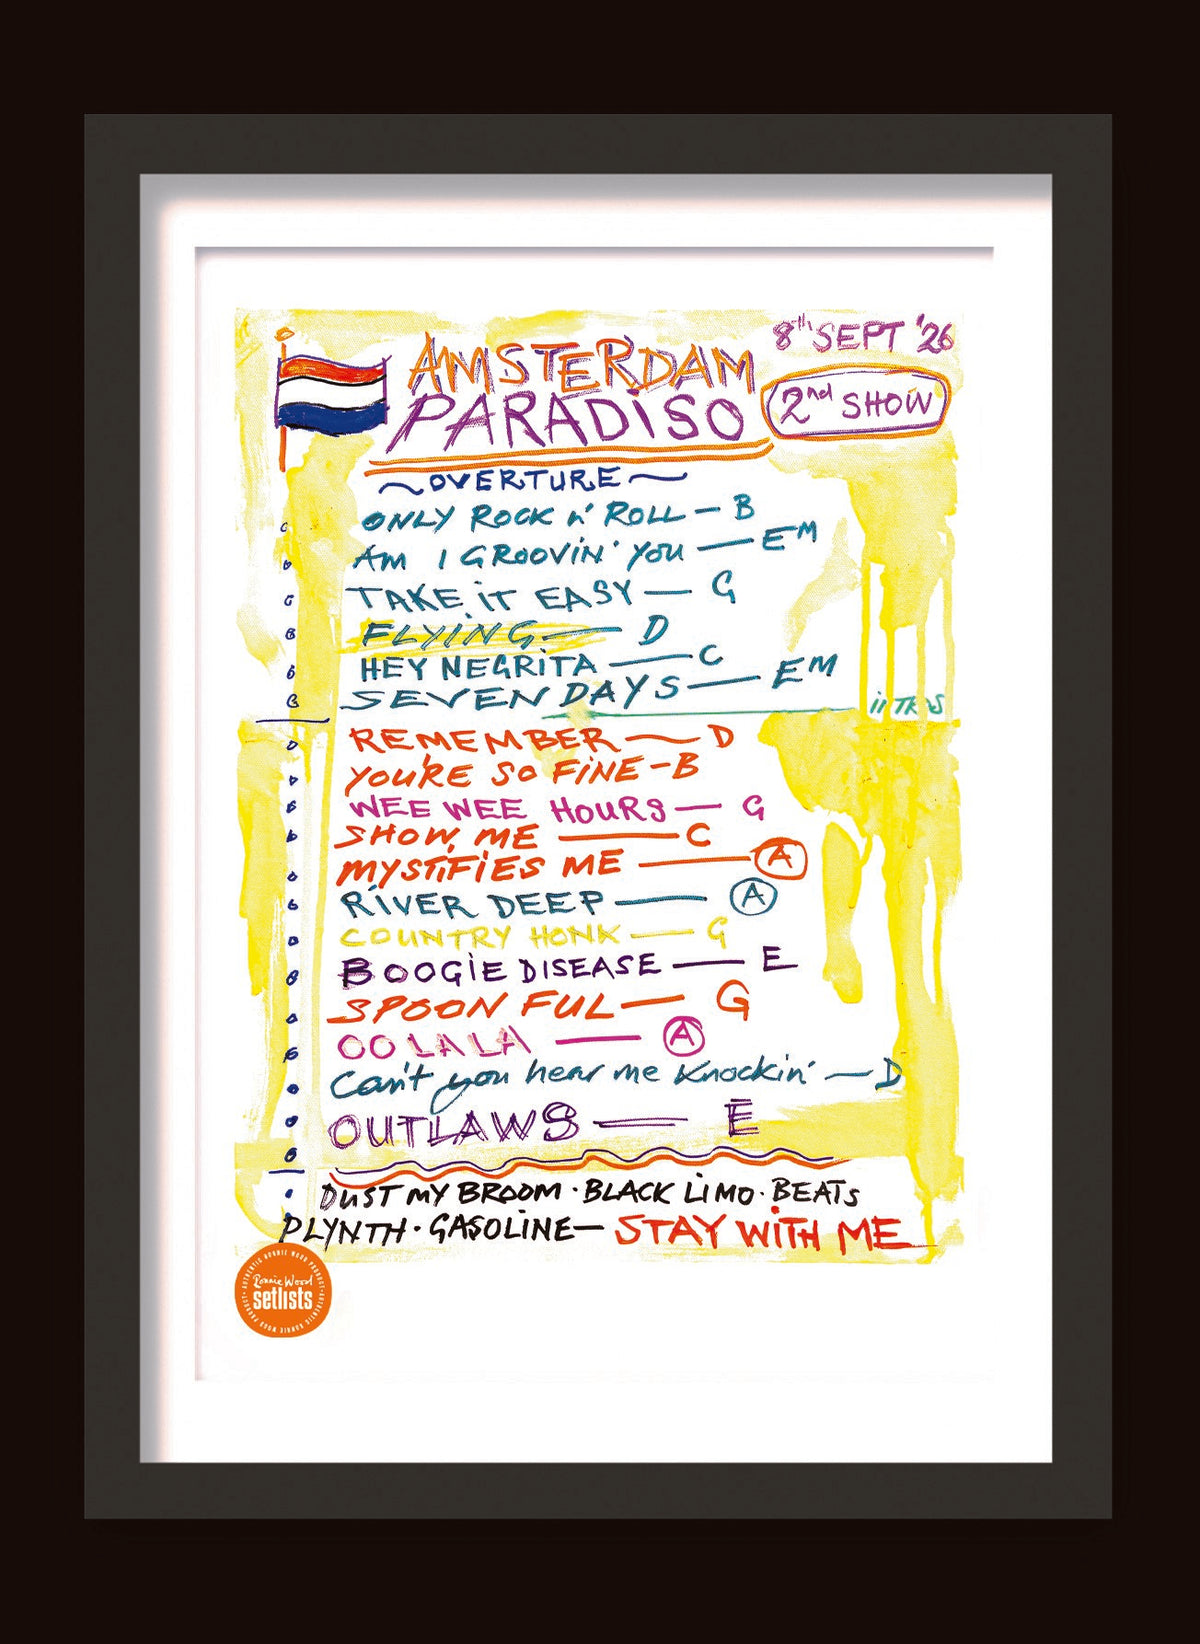 8th SEPT '26
AMSTERDAM
PARADISO
2nd SHOW
~OVERTURE~
ONLY ROCK n' ROLL — B
AM I GROOVIN' YOU — EM
TAKE IT EASY — G
FLYING — D
HEY NEGRITA — C
SEVEN DAYS — EM
INTROS
REMEMBER — D
YOU'RE SO FINE - B
WEE WEE HOURS — G
SHOW ME — C
MYSTIFIES ME — A
RIVER DEEP — A
COUNTRY HONK — G
BOOGIE DISEASE — E
SPOON FUL — G
OO LA LA — A
Can't you hear me Knockin' — D
OUTLAWS — E
DUST MY BROOM · BLACK LIMO · BEATS
PLYNTH · GASOLINE — STAY WITH ME
Ronnie Wood
setlists
AUTHENTIC RONNIE WOOD PRODUCT